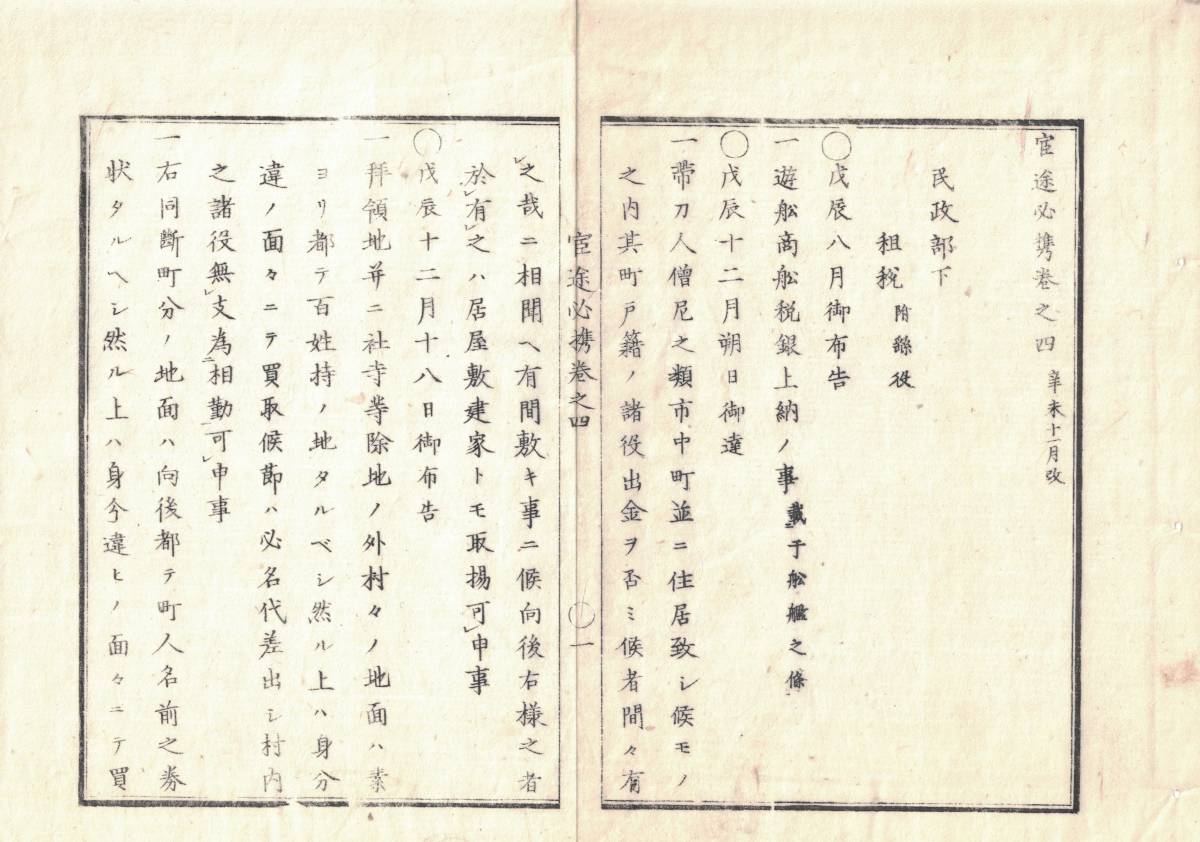 官途必携巻之四 辛未十一月改
民政部下
租税 附縣役
○戊辰八月御布告
一遊舩商舩税銀上納ノ事 載于舩艦之條
○戊辰十二月朔日御達
一帯刀人僧尼之類市中町並ニ住居致シ候モノ
之内其町戸籍ノ諸役出金ヲ否ミ候者間々有
之哉ニ相聞ヘ有間敷キ事ニ候向後右様之者
於有之ハ居屋敷建家トモ取揚可申事
○戊辰十二月十八日御布告
一拝領地并ニ社寺等除地ノ外村々ノ地面ハ素
ヨリ都テ百姓持ノ地タルベシ然ル上ハ身分
違ノ面々ニテ買取候節ハ必名代差出シ村内
之諸役無支為相勤可申事
一右同断町分ノ地面ハ向後都テ町人名前之券
状タルヘシ然ル上ハ身今違ヒノ面々ニテ買
官途必携巻之四 ○一